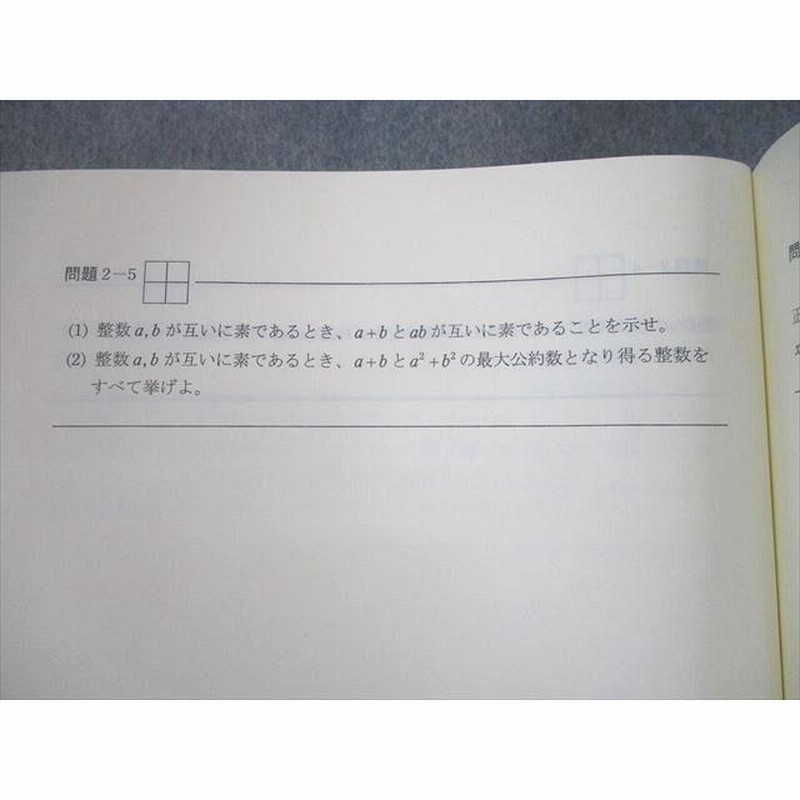 問題2-5
(1) 整数a,bが互いに素であるとき、a+bとabが互いに素であることを示せ。
(2) 整数a,bが互いに素であるとき、a+bとa²+b²の最大公約数となり得る整数を
すべて挙げよ。